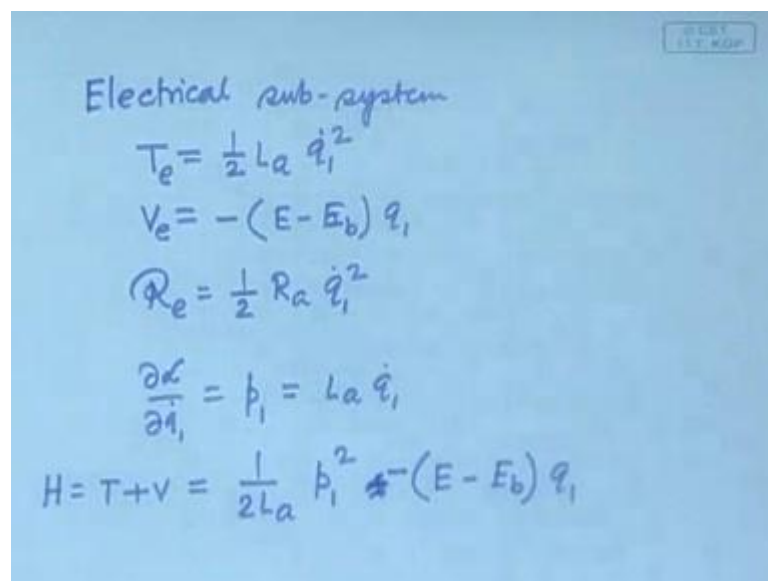 © CET
I.I.T. KGP
Electrical sub-system
T_e = 1/2 L_a q̇₁²
V_e = -(E - E_b) q₁
ℛ_e = 1/2 R_a q̇₁²
∂ℒ/∂q̇₁ = p₁ = L_a q̇₁
H = T+V = 1/(2L_a) p₁² -(E - E_b) q₁